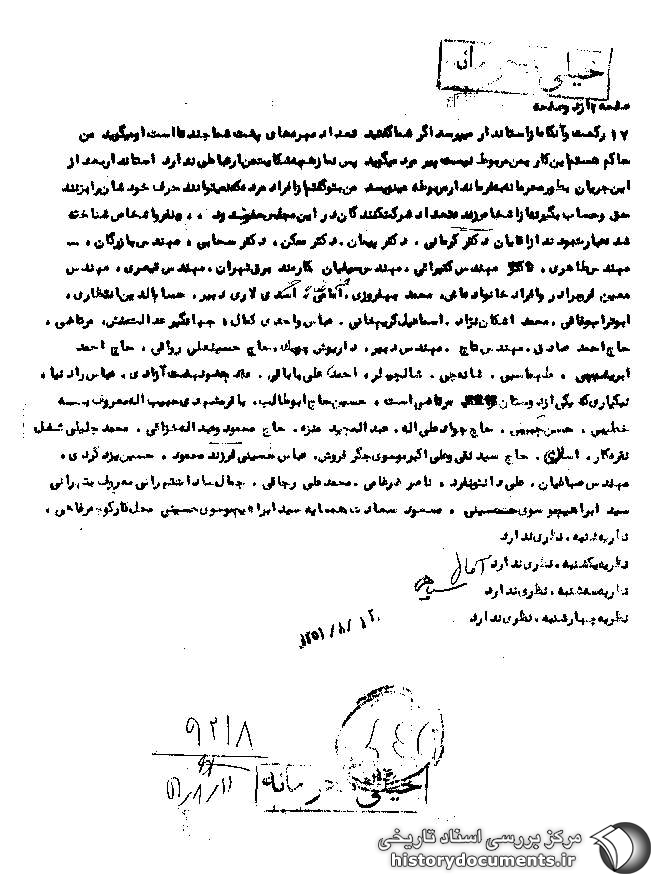 خیلی محرمانه
صفحه
۱۷ رکعت و آنگاه از استاندار میپرسد اگر شما گفتید تعداد مهره‌های پشت شما چند تا است او میگوید من
حاکم هستم این کار بمن مربوط نیست پیر مرد میگوید پس نماز شب شکایت بمن ارتباطی ندارد استاندار بعد از
این جریان بطور محرمانه بفرماندار مربوطه مینویسد من بتو گفتم از افراد مردم که نمیتوانند حرف خودشان را بزنند
حق و حساب بگیر نه از اشخاص رند تعداد شرکت کنندگان در این مجلس حدود نفر و اشخاص شناخته
شده عبارت بودند از آقایان دکتر کرمانی ، دکتر پیمان ، دکتر ممکن ، دکتر سحابی ، مهندس بازرگان ،
مهندس طاهری ، مهندس کتیرائی ، مهندس سیفیان کارمند برق تهران ، مهندس قیصری ، مهندس
معین فر برادر و افراد خانواده‌اش ، محمد بهفروزی ، اسدی لاری دبیر ، حسام الدین انتظاری ،
ابوتراب وفائی ، محمد اشکان نژاد ، اسماعیل کریمخانی ، عباس واحدی کمال ، جهانگیر عدالت منش ، مرتاضی ،
حاج احمد صادق ، مهندس تاج ، مهندس دبیر ، داریوش چوبک ، حاج حسینعلی رواقی ، حاج احمد
ابریشمی ، طهماسبی ، شانه‌چی ، شالچیلر ، احمد علی بابائی ، محمود بخت آزادی ، عباس رادنیا ،
نیکیاری که یکی از دوستان مرتاضی است ، حسین حاج ابوطالب ، باقر رشیدی حبیب اله معروف به
خطیبی ، حسن حبیبی ، حاج جواد علی اله ، عبدالمجید منزه ، حاج محمود وعبداله خزائی ، محمد جلیلی شغل
نقره‌کار ، اسلامی ، حاج سید نقی و علی اکبر موسوی جگر فروش ، عباس حسینی فرزند محمود ، حسین یزد گردی ،
مهندس صباغیان ، علی دانش منفرد ، ناصر ضرغامی ، محمد علی رجائی ، جمال سادات تهرانی معروف بتهرانی
سید ابراهیم موسوی حسینی ، مسعود سعادت همسایه سید ابراهیم موسوی حسینی محل کار کوچه رفاهی ،
نظریه شنبه ، نظری ندارد
نظریه یکشنبه ، نظری ندارد
نظریه سه‌شنبه ، نظری ندارد
نظریه چهارشنبه ، نظری ندارد
۱۳۵۱/۸/۱۲
۹۲۱۸
۵۱/۸/۱۲
خیلی محرمانه
مرکز بررسی اسناد تاریخی
historydocuments.ir